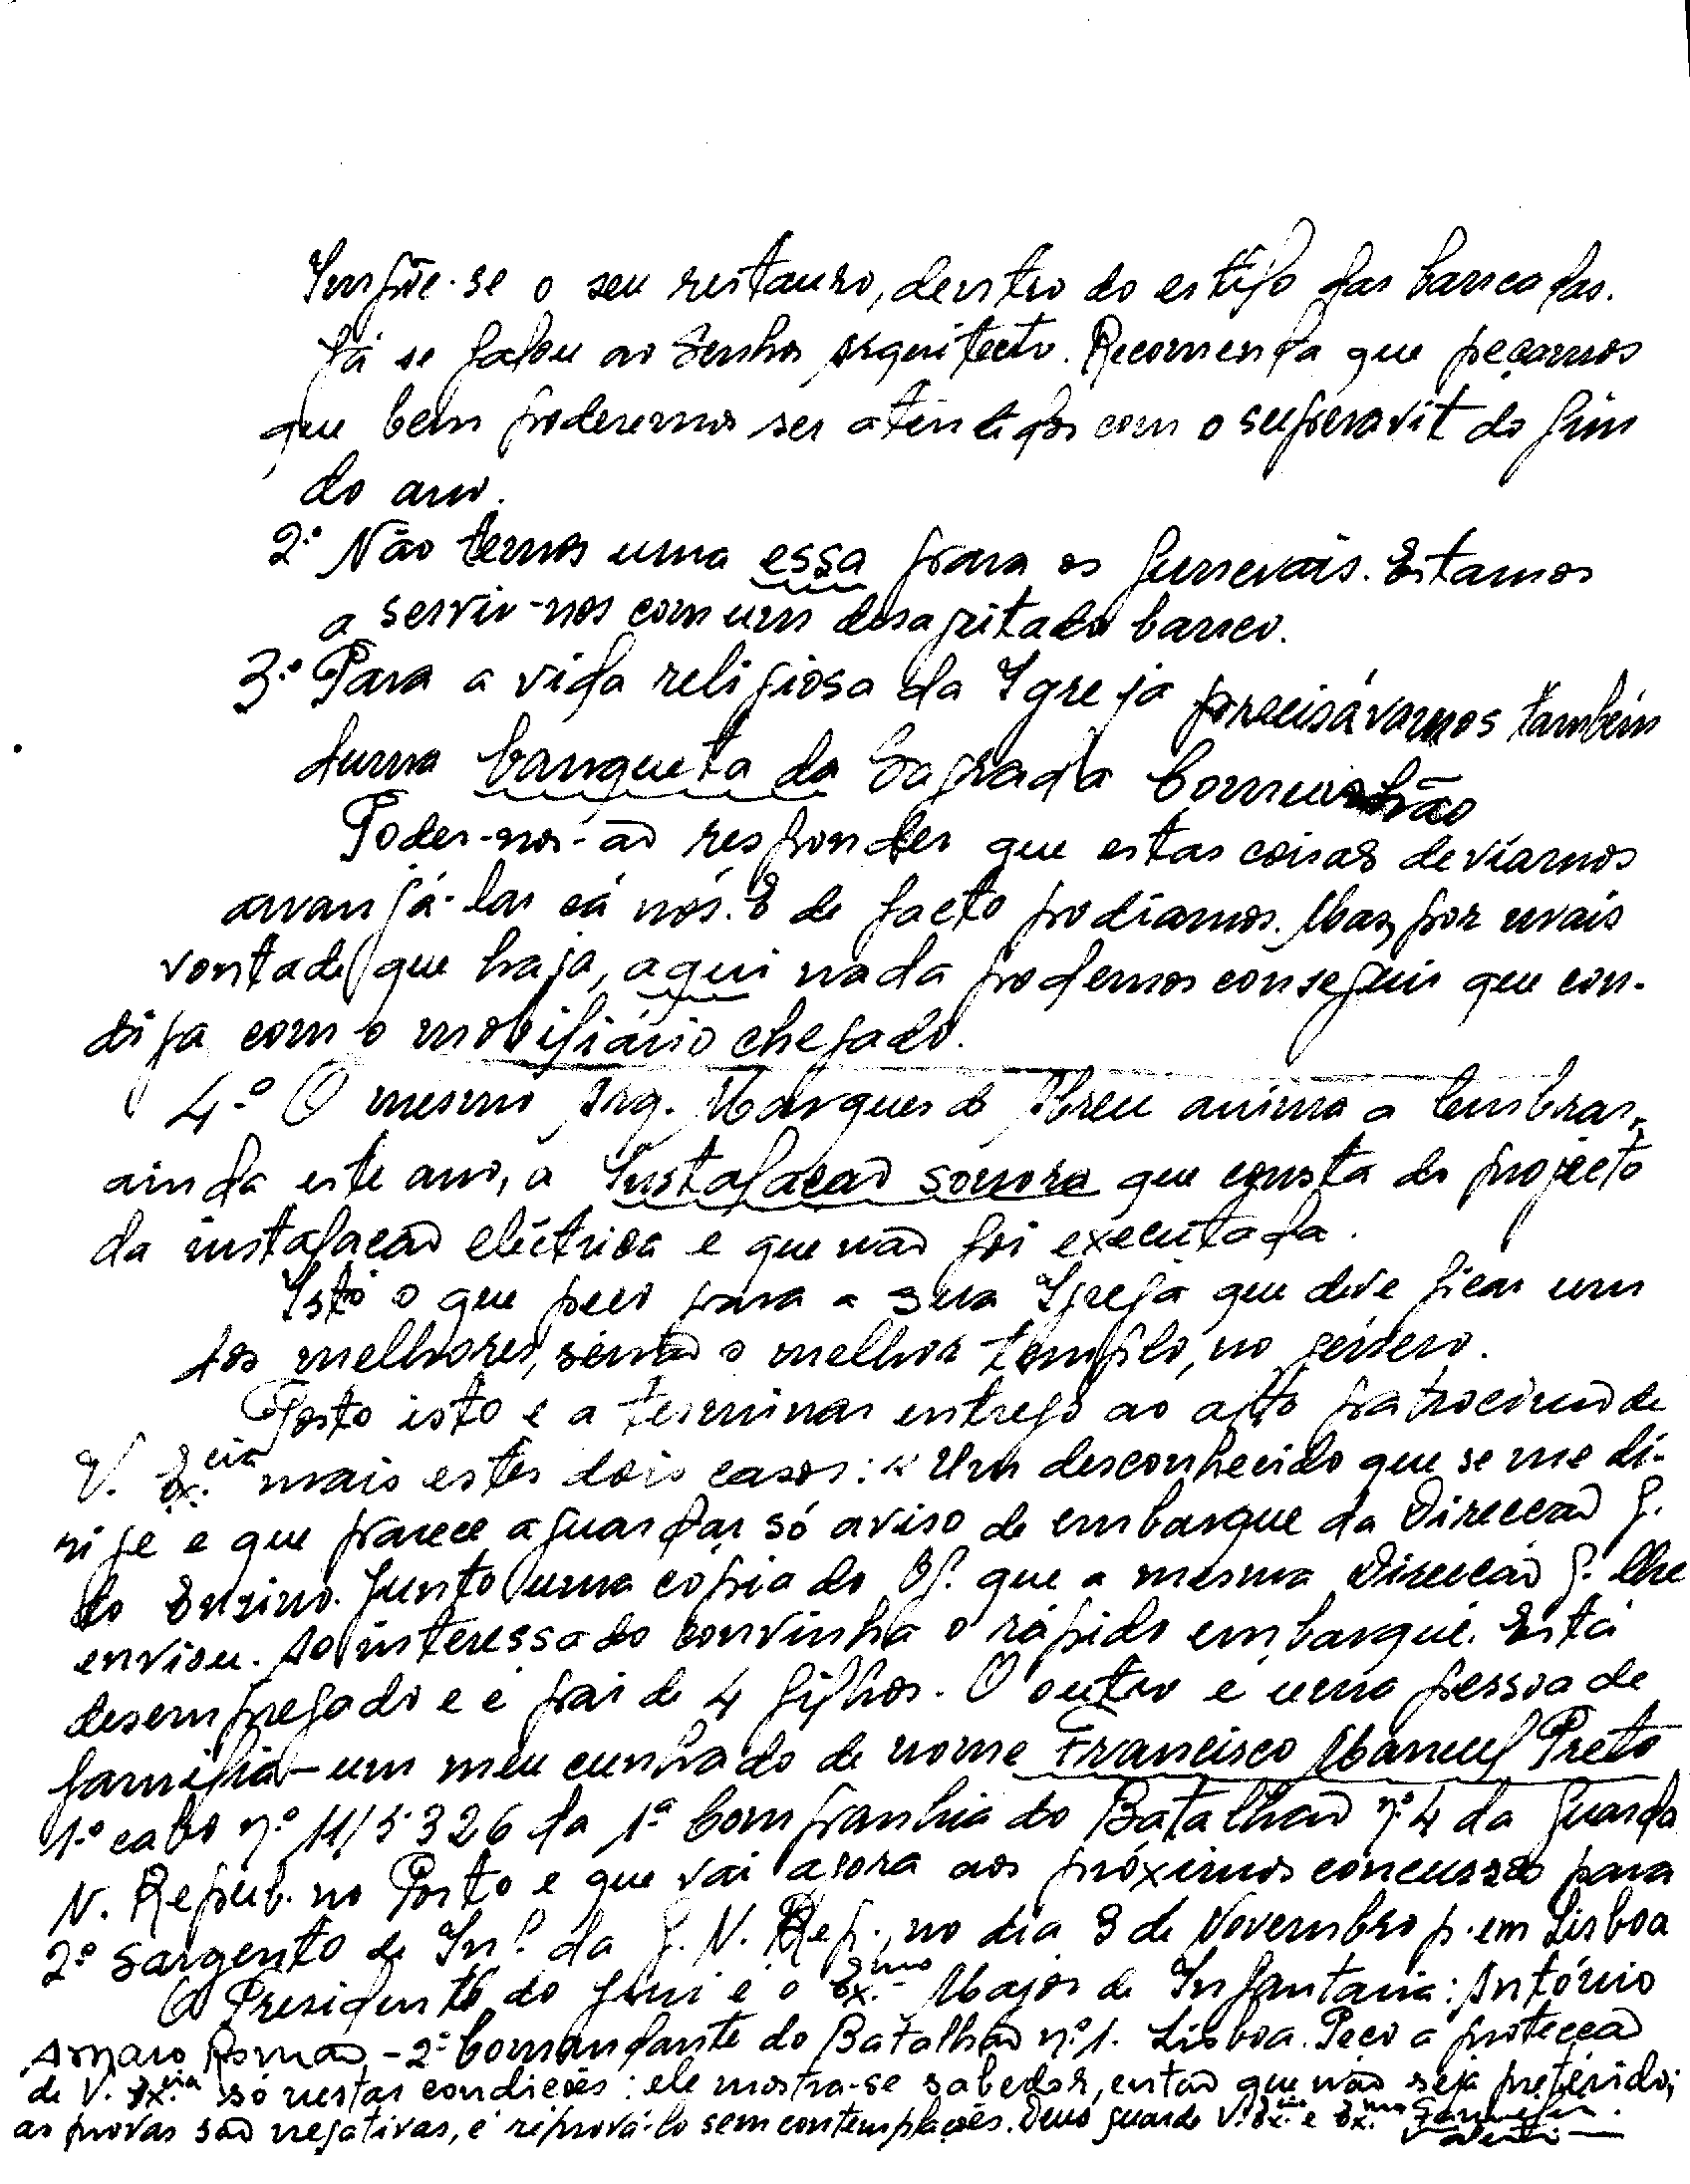 Impõe-se o seu restauro, dentro do estilo das bancadas.
Já se falou ao Senhor Arquitecto. Recomenda que peçamos
que bem poderemos ser atendidos com o superavit do fim
do ano.
2.º Não temos uma essa para os funerais. Estamos
a servir-nos com um desajeitado banco.
3.º Para a vida religiosa da Igreja precisávamos também
duma banqueta da Sagrada Comunhão
Poder-nos-ão responder que estas coisas devíamos
arranjá-las cá nós. E de facto podíamos. Mas, por mais
vontade que haja, aqui nada podemos conseguir que con-
diga com o mobiliário chegado.
4.º O mesmo Arq. Marques de Abreu anima a lembrar,
ainda este ano, a Instalação sonora que consta do projecto
da instalação eléctrica e que não foi executada.
Isto o que peço para a sua Igreja que deve ficar um
dos melhores, senão o melhor templo, no género.
Posto isto e a terminar entrego ao alto patrocínio de
V. Ex.cia mais estes dois casos: Um desconhecido que se me di-
rige e que parece aguardar só aviso de embarque da Direcção G.
do Ensino. Junto uma cópia do Of. que a mesma Direcção G. lhe
enviou. Ao interessado convinha o rápido embarque. Está
desempregado e é pai de 4 filhos. O outro é uma pessoa de
família - um meu cunhado de nome Francisco Manuel Preto
1.º cabo n.º 11/5326 da 1.ª Companhia do Batalhão n.º 4 da Guarda
N. Repub. no Porto e que vai agora aos próximos concursos para
2.º sargento de Inf. da G. N. Rep., no dia 3 de Novembro p. em Lisboa
O Presidente do Júri é o Ex.mo Major de Infantaria: António
Amaro Romão - 2.º Comandante do Batalhão n.º 1. Lisboa. Peço a protecção
de V. Ex.cia só nestas condições: ele mostra-se sabedor, então que não seja preterido;
as provas são negativas, é reprová-lo sem contemplações. Deus guarde V. Ex.cia e Ex.ma Família.